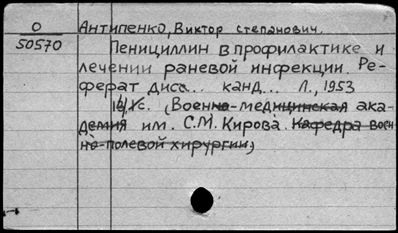 О
50570
Антипенко, Виктор степанович.
Пенициллин в профилактике и
лечении раневой инфекции. Ре-
ферат дисс... канд... Л., 1953
с. (Военно-медицинская ака-
демия им. С.М. Кирова. Кафедра воен
но-полевой хирургии)